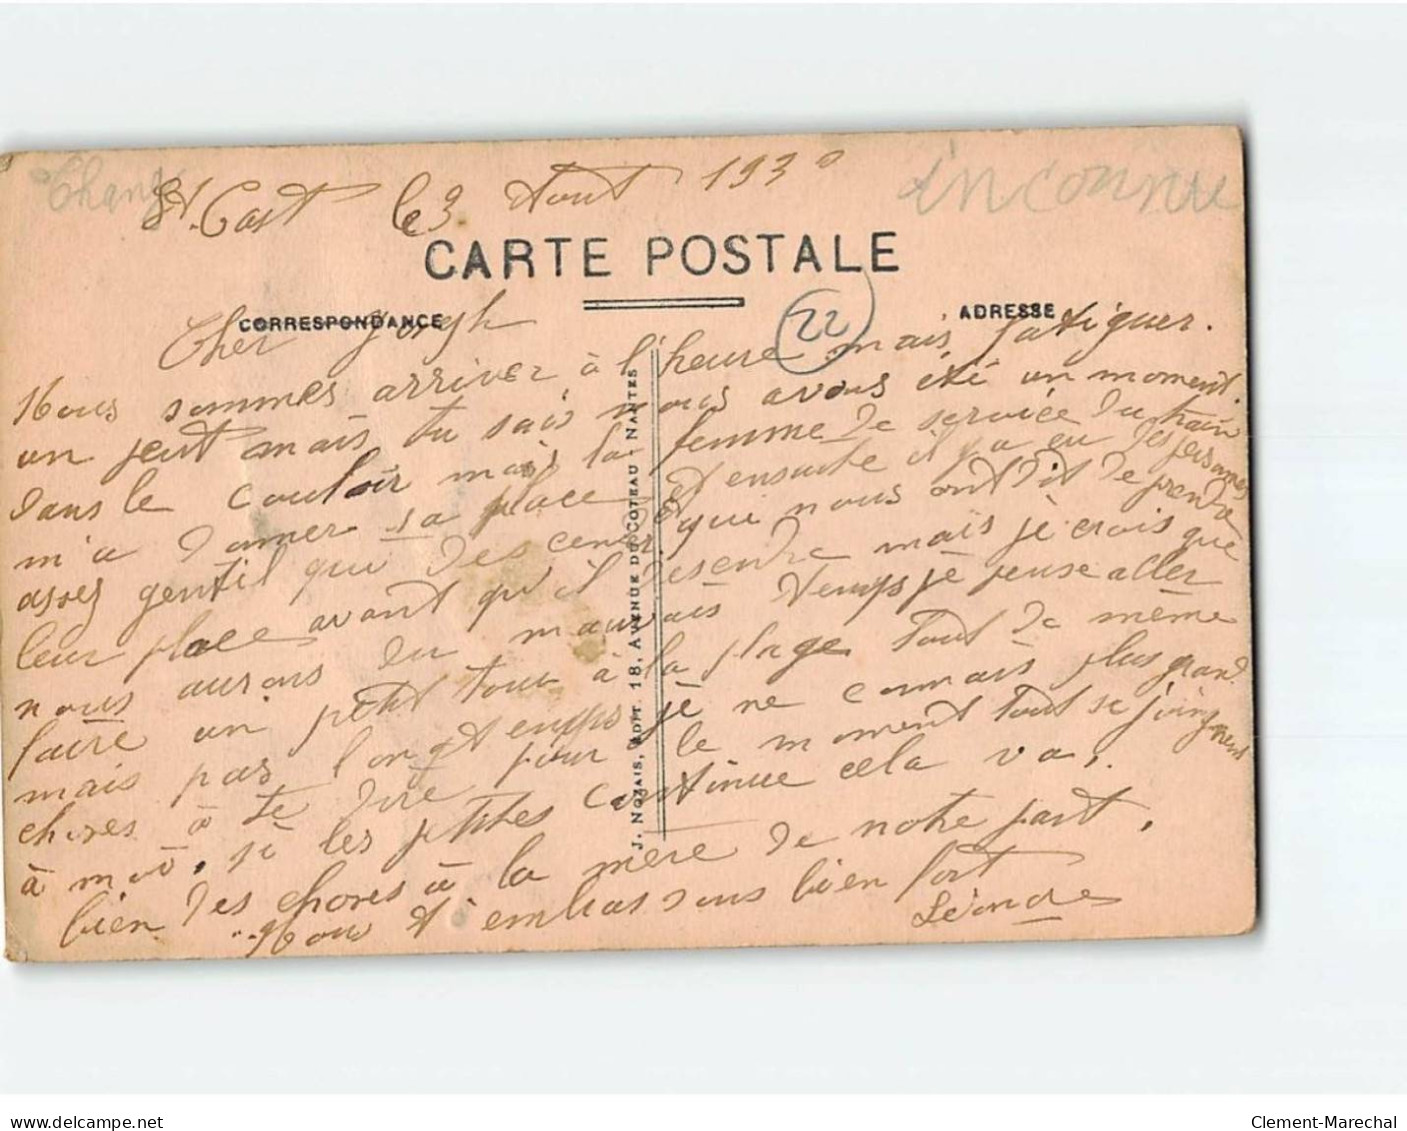 inconnu
St. Cast le 3 Aout 1930
CARTE POSTALE
CORRESPONDANCE
ADRESSE
22
Cher Joseph
Nous sommes arriver à l'heure mais fatiguer.
un peut mais tu sais nous avons été un moment
dans le couloir mais la femme de service du train
m'a donner sa place et ensuite il y a eu des personnes
assez gentil qui descendr qui nous ont dit de prendre
leur place avant qu'il desendre mais je crois que
nous aurons du mauvais temps je pense aller
faire un petit tour à la plage tout de même
mais pas longtemps je ne connais plus grand
choses à te dire pour le moment tout se joingnent
à moi, si les petites continue cela va,
bien des choses à la mère de notre part,
Nous t'embrassons bien fort
Léonde
J. NOZAIS, EDIT. 18, AVENUE DU COTEAU - NANTES
www.delcampe.net
Clement-Marechal